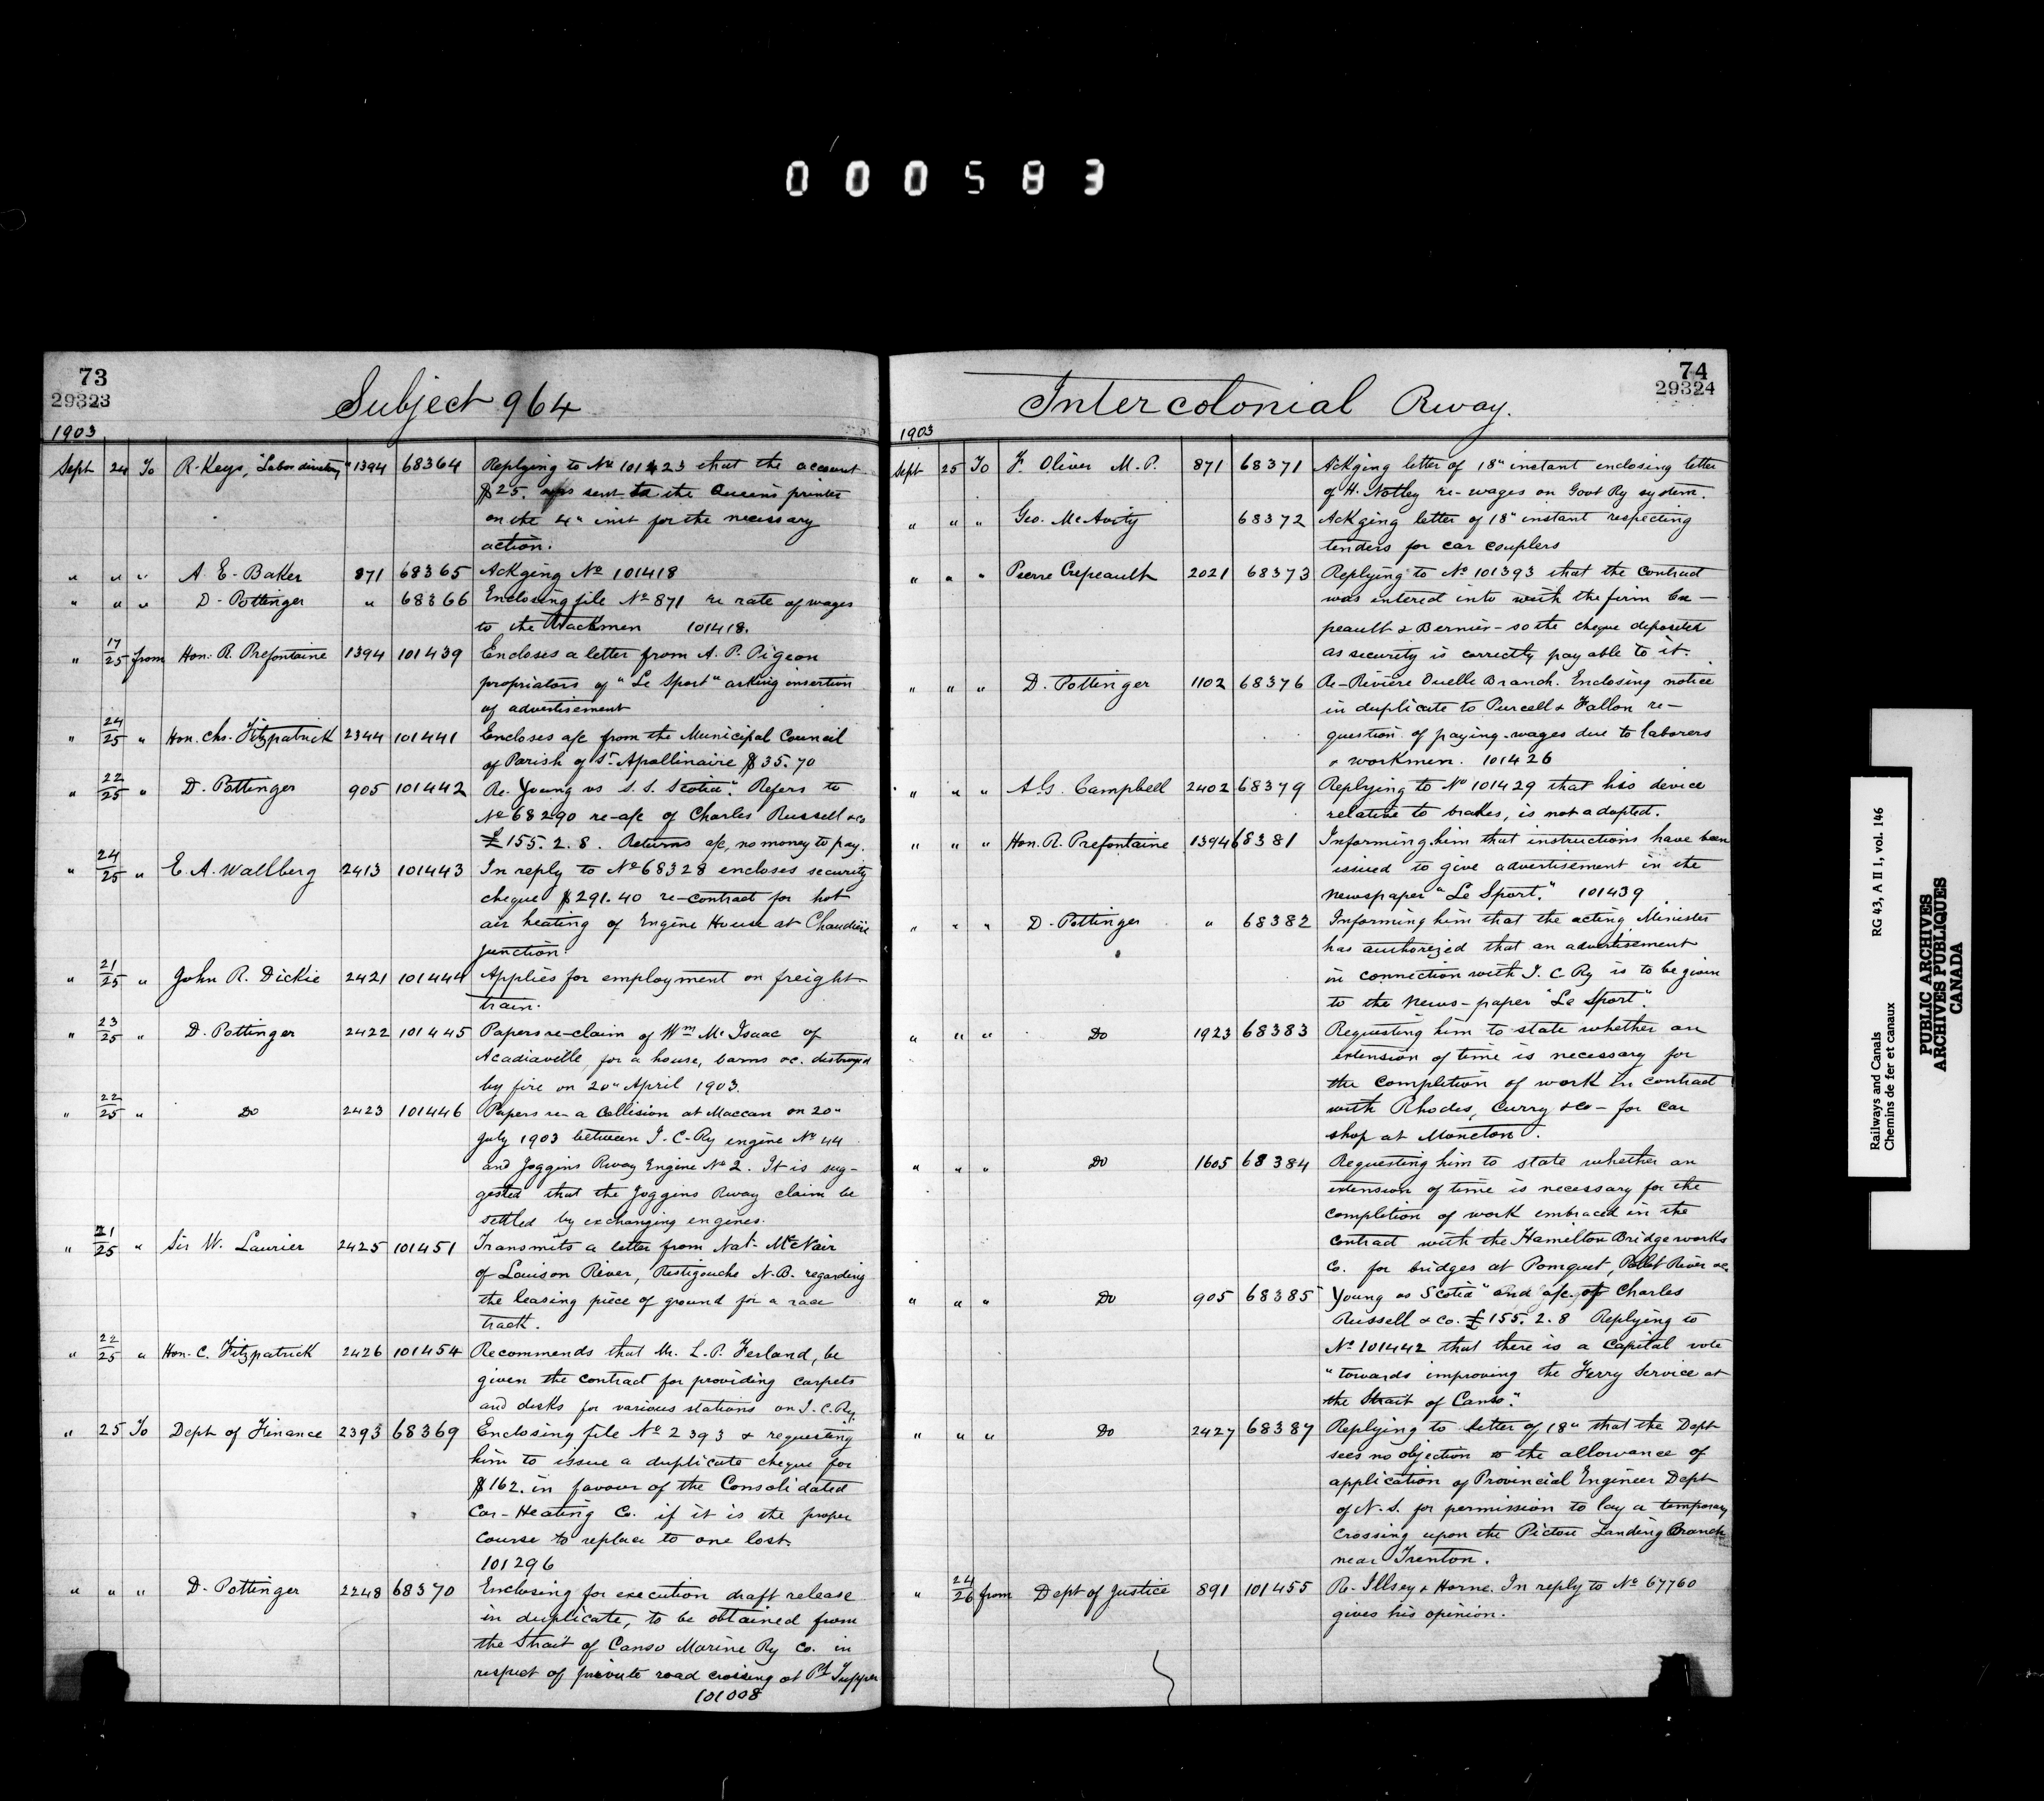 000583
73
29323
Subject 964
1903
Sept 24 To R. Keys, "Labor directory" 1394 68364 Replying to No 101423 that the account
$25. was sent to the Queen's printer
on the 4" inst for the necessary
action.
" " " A. E. Baker 871 68365 Ackging No 101418
" " " D. Pottinger " 68366 Enclosing file No 871 re rate of wages
to the Trackmen 101418.
" 17/25 from Hon. R. Prefontaine 1394 101439 Encloses a letter from A. P. Pigeon
propriators of "Le Sport" asking insertion
of advertisement
" 24/25 " Hon. Chs. Fitzpatrick 2344 101441 Encloses a/c from the Municipal Council
of Parish of St. Apollinaire $35.70
" 22/25 " D. Pottinger 905 101442 Re. Young vs S. S. Scotia". Refers to
No 68290 re-a/c of Charles Russell & Co
£155. 2. 8. Returns a/c, no money to pay.
" 24/25 " E. A. Wallberg 2413 101443 In reply to No 68328 encloses security
cheque $291.40 re-contract for hot
air heating of Engine House at Chaudiere
Junction.
" 21/25 " John R. Dickie 2421 101444 Applies for employment on freight
train.
" 23/25 " D. Pottinger 2422 101445 Papers re-claim of Wm McIsaac of
Acadiaville, for a house, barns &c. destroyed
by fire on 20" April 1903.
" 22/25 " Do 2423 101446 Papers re- a Collision at Maccan on 20"
July 1903 between I. C. Ry engine No 44
and Joggins Rway Engine No 2. It is sug-
gested that the Joggins Rway claim be
settled by exchanging engines.
" 21/25 " Sir W. Laurier 2425 101451 Transmits a letter from Nat. McNair
of Louison River, Restigouche N.B. regarding
the leasing piece of ground for a race
track.
" 22/25 " Hon. C. Fitzpatrick 2426 101454 Recommends that Mr. L. P. Ferland, be
given the contract for providing carpets
and desks for various stations on I. C. Ry.
" 25 To Dept of Finance 2393 68369 Enclosing file No 2393 & requesting
him to issue a duplicate cheque for
$162. in favour of the Consolidated
Car-Heating Co. if it is the proper
course to replace to one lost.
101296
" " " D. Pottinger 2248 68370 Enclosing for execution draft release
in duplicate, to be obtained from
the Strait of Canso Marine Ry Co. in
respect of private road crossing at Pt Tupper
101008
74
29324
Intercolonial Rway.
1903
Sept 25 To F. Oliver M. P. 871 68371 Ackging letter of 18" instant enclosing letter
of H. Notley re-wages on Govt Ry system.
" " " Geo. McAvity 68372 Ackging letter of 18" instant respecting
tenders for car couplers
" " " Pierre Crepeault 2021 68373 Replying to No 101393 that the contract
was intered into with the firm Cre-
peault & Bernier - so the cheque deposited
as security is correctly payable to it.
" " " D. Pottinger 1102 68376 Re-Rivière Ouelle Branch. Enclosing notice
in duplicate to Purcell & Fallon re-
question of paying wages due to laborers
& workmen. 101426
" " " A. G. Campbell 2402 68379 Replying to No 101429 that his device
relative to brakes, is not adopted.
" " " Hon. R. Prefontaine 1394 68381 Informing him that instructions have been
issued to give advertisement in the
newspaper "Le Sport." 101439
" " " D. Pottinger " 68382 Informing him that the acting Minister
has authorized that an advertisement
in connection with I. C Ry is to be given
to the News-paper "Le Sport".
" " " Do 1923 68383 Requesting him to state whether an
extension of time is necessary for
the completion of work in contract
with Rhodes, Curry & Co - for car
shop at Moncton.
" " " Do 1605 68384 Requesting him to state whether an
extension of time is necessary for the
completion of work embraced in the
contract with the Hamilton Bridge works
Co. for bridges at Pomquet, River &c.
" " " Do 905 68385 Young vs Scotia" and a/c of Charles
Russell & Co. £155. 2. 8 Replying to
No 101442 that there is a Capital vote
"towards improving the Ferry Service at
the Strait of Canso."
" " " Do 2427 68387 Replying to letter of 18" that the Dept
sees no objection to the allowance of
application of Provincial Engineer Dept
of N. S. for permission to lay a temporary
crossing upon the Pictou Landing Branch
near Trenton.
" 24/26 from Dept of Justice 891 101455 Re- Illsey & Horne. In reply to No 67760
gives his opinion.
Railways and Canals RG 43, A II 1, vol. 146
Chemins de fer et canaux
PUBLIC ARCHIVES
ARCHIVES PUBLIQUES
CANADA